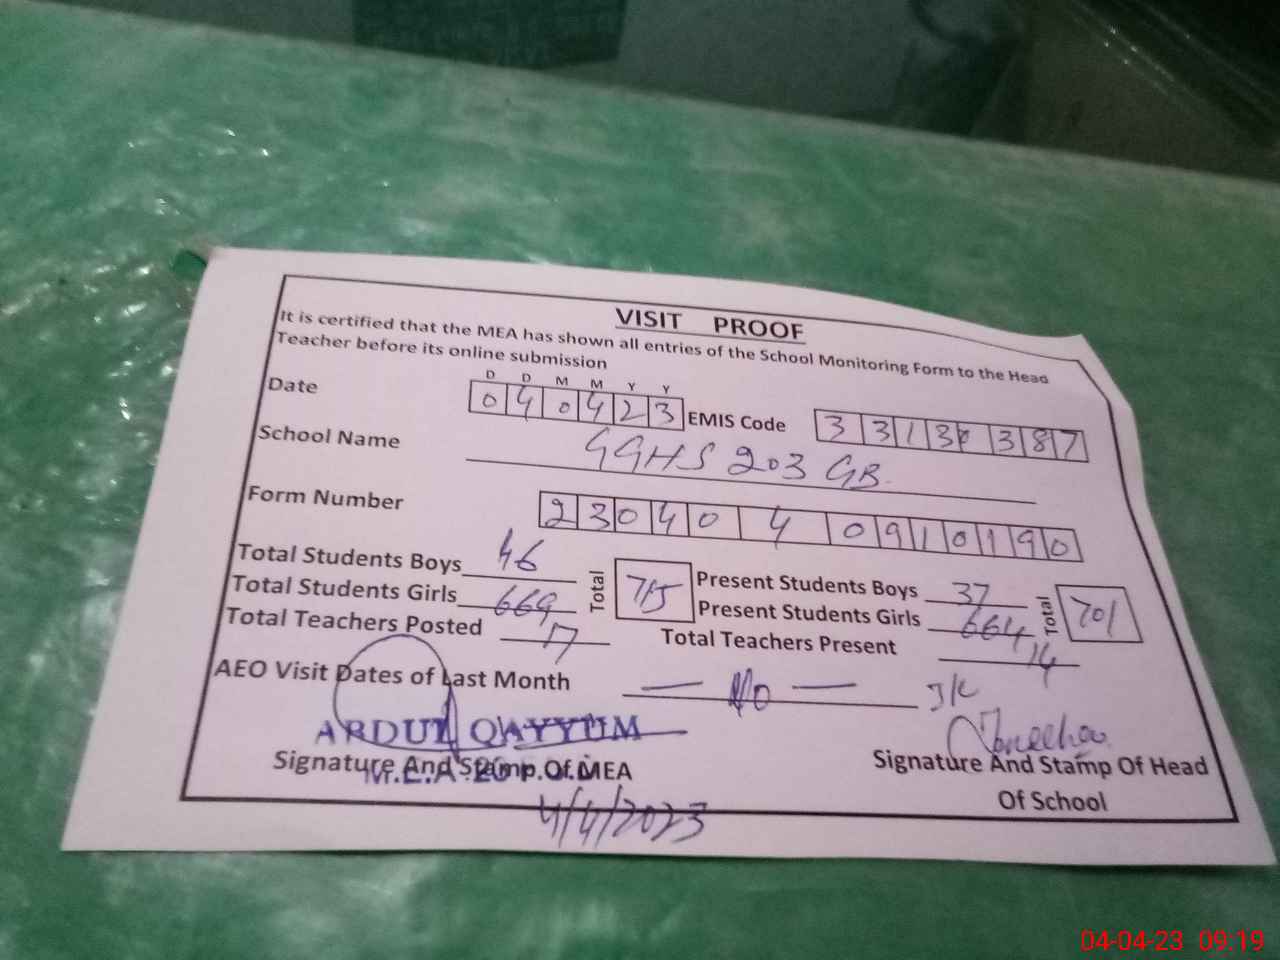 VISIT PROOF
It is certified that the MEA has shown all entries of the School Monitoring Form to the Head
Teacher before its online submission
D D M M Y Y
Date 0 4 0 4 2 3 EMIS Code 3 3 1 3 0 3 8 7
School Name GGHS 203 GB.
Form Number 2 3 0 4 0 4 0 9 1 0 1 9 0
Total Students Boys 46 Total 715 Present Students Boys 37 Total 701
Total Students Girls 669 Present Students Girls 664
Total Teachers Posted 17 Total Teachers Present 14
AEO Visit Dates of Last Month — No —
ABDUL QAYYUM
Signature And Stamp Of MEA
M.E.A
Signature And Stamp Of Head
Of School
4/4/2023
04-04-23 09:19